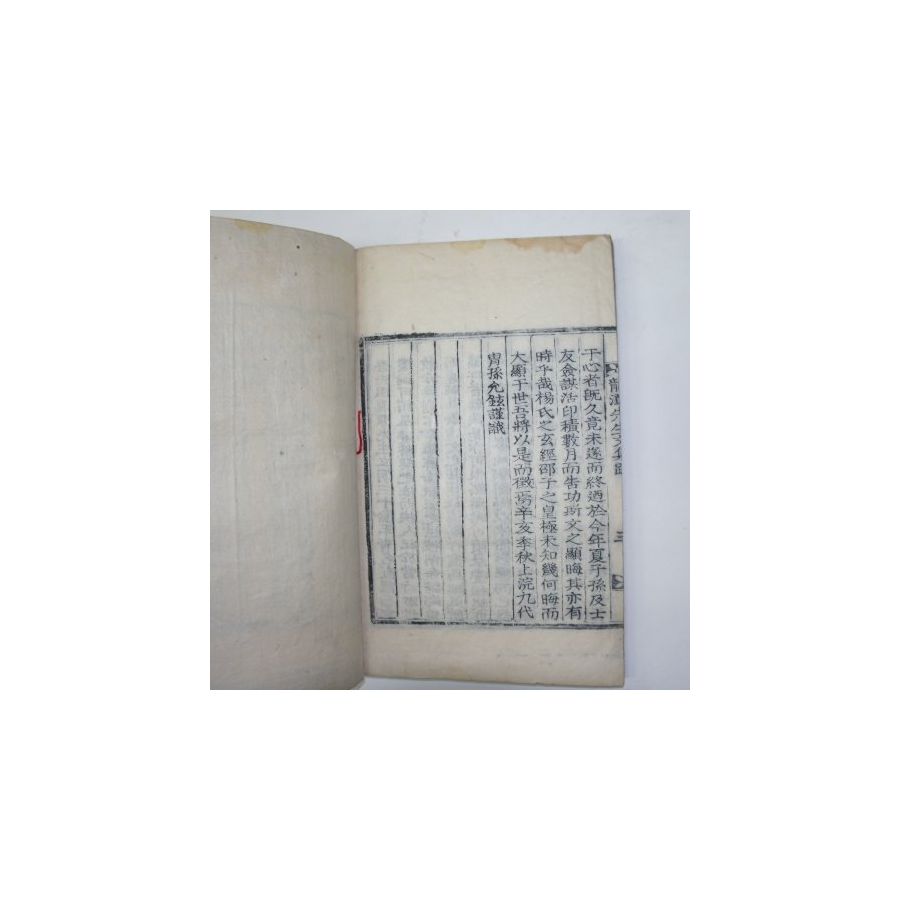 于心者旣久竟未遂而終迺於今年夏子孫及士
友僉謀活印積數月而告功斯文之顯晦其亦有
時乎哉楊氏之玄經邵子之皇極未知幾何晦而
大顯于世吾將以是而徵焉辛亥季秋上浣九代
胄孫允鉉謹識
先生文集跋
三